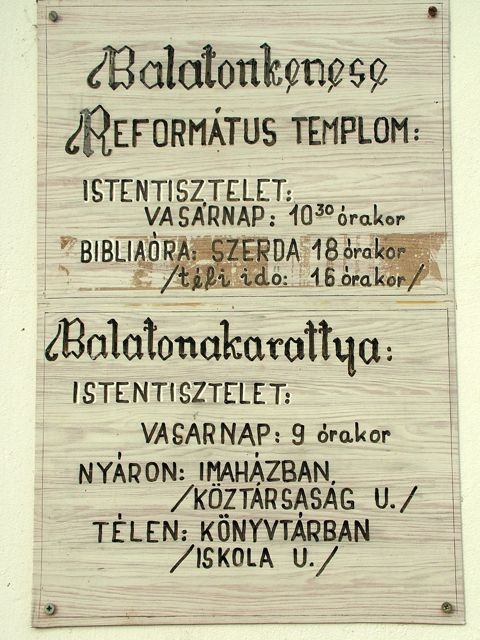 Balatonkenese
REFORMÁTUS TEMPLOM:
ISTENTISZTELET:
VASÁRNAP: 10³⁰ órakor
BIBLIAÓRA: SZERDA 18 órakor
/téli idő: 16 órakor/
Balatonakarattya:
ISTENTISZTELET:
VASARNAP: 9 órakor
NYÁRON: IMAHÁZBAN
/KÖZTÁRSASÁG U./
TÉLEN: KÖNYVTÁRBAN
/ISKOLA U./